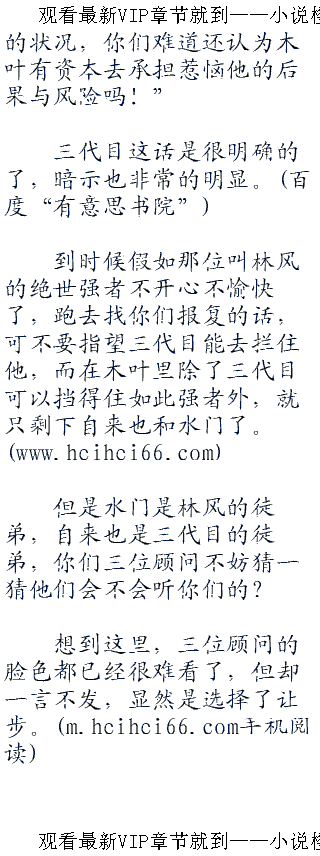 观看最新VIP章节就到——小说楼
的状况，你们难道还认为木
叶有资本去承担惹恼他的后
果与风险吗！”
三代目这话是很明确的
了，暗示也非常的明显。(百
度“有意思书院”)
到时候假如那位叫林风
的绝世强者不开心不愉快
了，跑去找你们报复的话，
可不要指望三代目能去拦住
他，而在木叶里除了三代目
可以挡得住如此强者外，就
只剩下自来也和水门了。
(www.hcihci66.com)
但是水门是林风的徒
弟，自来也是三代目的徒
弟，你们三位顾问不妨猜一
猜他们会不会听你们的？
想到这里，三位顾问的
脸色都已经很难看了，但却
一言不发，显然是选择了让
步。(m.hcihci66.com手机阅
读)
观看最新VIP章节就到——小说楼